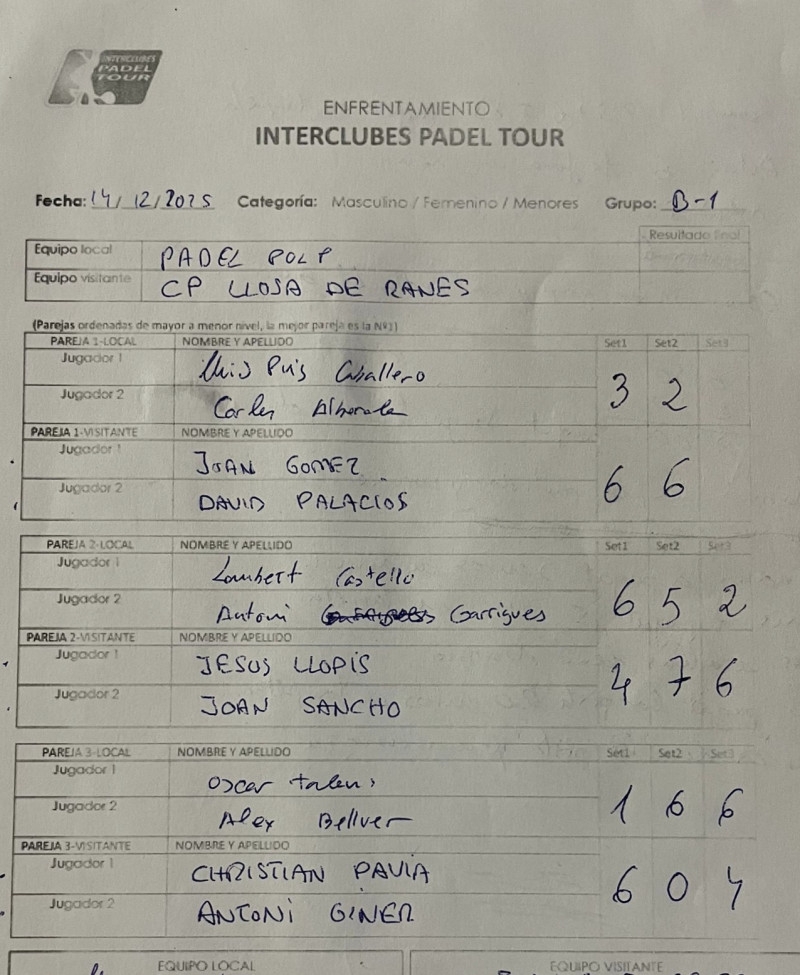 INTERCLUBES
PADEL
TOUR
ENFRENTAMIENTO
INTERCLUBES PADEL TOUR
Fecha: 14/12/2025 Categoría: Masculino / Femenino / Menores Grupo: B-1
Resultado final
Equipo local PADEL POLP
Equipo visitante CP LLOSA DE RANES
(Parejas ordenadas de mayor a menor nivel, la mejor pareja es la Nº1)
PAREJA 1-LOCAL NOMBRE Y APELLIDO Set1 Set2 Set3
Jugador 1 Lluis Puis Caballero
3 2
Jugador 2 Carles
PAREJA 1-VISITANTE NOMBRE Y APELLIDO
Jugador 1 JOAN GOMEZ
6 6
Jugador 2 DAVID PALACIOS
PAREJA 2-LOCAL NOMBRE Y APELLIDO Set1 Set2 Set3
Jugador 1 Lambert Castello
6 5 2
Jugador 2 Antoni Garrigues
PAREJA 2-VISITANTE NOMBRE Y APELLIDO
Jugador 1 JESUS LLOPIS
4 7 6
Jugador 2 JOAN SANCHO
PAREJA 3-LOCAL NOMBRE Y APELLIDO Set1 Set2 Set3
Jugador 1 Oscar talens
1 6 6
Jugador 2 Alex Bellver
PAREJA 3-VISITANTE NOMBRE Y APELLIDO
Jugador 1 CHRISTIAN PAVIA
6 0 4
Jugador 2 ANTONI GINER
EQUIPO LOCAL EQUIPO VISITANTE